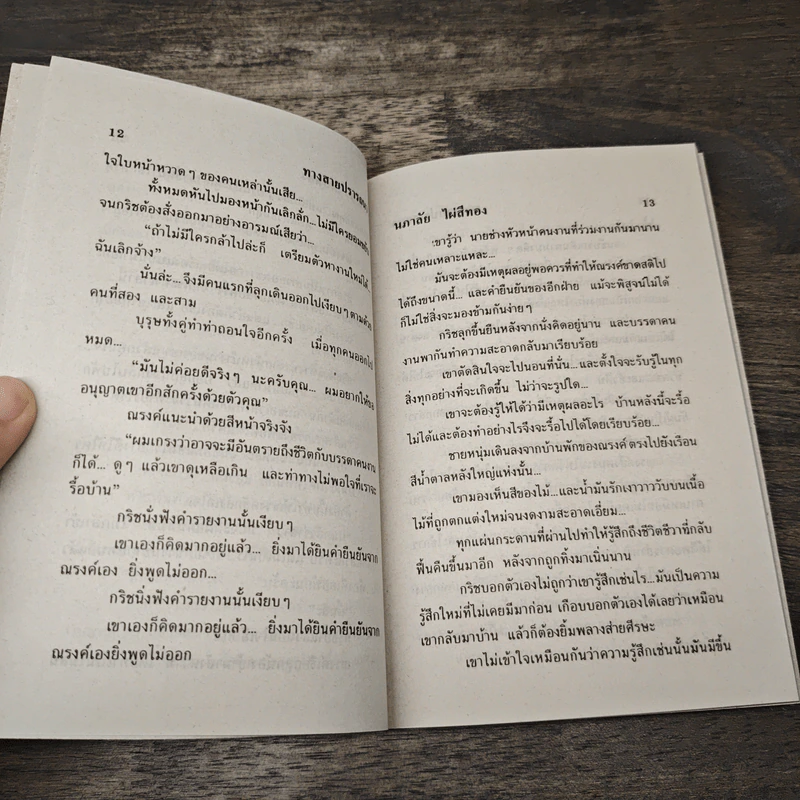 12
ทางสายปรารถนา
ใจใบหน้าหวาดๆ ของคนเหล่านั้นเสีย...
ทั้งหมดหันไปมองหน้ากันเลิกลั่ก...ไม่มีใครยอมขยับ
จนกริชต้องสั่งออกมาอย่างอารมณ์เสียว่า...
“ถ้าไม่มีใครกล้าไปล่ะก็ เตรียมตัวหางานใหม่ได้
ฉันเลิกจ้าง”
นั่นล่ะ...จึงมีคนแรกที่ลุกเดินออกไปเงียบๆ ตามด้วย
คนที่สอง และสาม
บุรุษทั้งคู่ทำท่าถอนใจอีกครั้ง เมื่อทุกคนออกไป
หมด...
“มันไม่ค่อยดีจริงๆ นะครับคุณ... ผมอยากให้ขอ
อนุญาตเขาอีกสักครั้งด้วยตัวคุณ”
ณรงค์แนะนำด้วยสีหน้าจริงจัง
“ผมเกรงว่าอาจจะมีอันตรายถึงชีวิตกับบรรดาคนงาน
ก็ได้... ดูๆ แล้วเขาดุเหลือเกิน และท่าทางไม่พอใจที่เราจะ
รื้อบ้าน”
กริชนั่งฟังคำรายงานนั้นเงียบๆ
เขาเองก็คิดมากอยู่แล้ว... ยิ่งมาได้ยินคำยืนยันจาก
ณรงค์เอง ยิ่งพูดไม่ออก...
กริชนิ่งฟังคำรายงานนั้นเงียบๆ
เขาเองก็คิดมากอยู่แล้ว... ยิ่งมาได้ยินคำยืนยันจาก
ณรงค์เองยิ่งพูดไม่ออก
นภาลัย ไผ่สีทอง
13
เขารู้ว่า นายช่างหัวหน้าคนงานที่ร่วมงานกันมานาน
ไม่ใช่คนเหลาะแหละ...
มันจะต้องมีเหตุผลอยู่พอควรที่ทำให้ณรงค์ขาดสติไป
ได้ถึงขนาดนี้... และคำยืนยันของอีกฝ่าย แม้จะพิสูจน์ไม่ได้
ก็ไม่ใช่สิ่งจะมองข้ามกันง่ายๆ
กริชลุกขึ้นยืนหลังจากนั่งคิดอยู่นาน และบรรดาคน
งานพากันทำความสะอาดกลับมาเรียบร้อย
เขาตัดสินใจจะไปนอนที่นั่น...และตั้งใจจะรับรู้ในทุก
สิ่งทุกอย่างที่จะเกิดขึ้น ไม่ว่าจะรูปใด...
เขาจะต้องรู้ให้ได้ว่ามีเหตุผลอะไร บ้านหลังนี้จะรื้อ
ไม่ได้และต้องทำอย่างไรจึงจะรื้อไปได้โดยเรียบร้อย...
ชายหนุ่มเดินลงจากบ้านพักของณรงค์ ตรงไปยังเรือน
สีน้ำตาลหลังใหญ่แห่งนั้น...
เขามองเห็นสีของไม้...และน้ำมันรักเงาวาววับบนเนื้อ
ไม้ที่ถูกตกแต่งใหม่จนงดงามสะอาดเอี่ยม...
ทุกแผ่นกระดานที่ผ่านไปทำให้รู้สึกถึงชีวิตชีวาที่กลับ
ฟื้นคืนขึ้นมาอีก หลังจากถูกทิ้งมาเนิ่นนาน
กริชบอกตัวเองไม่ถูกว่าเขารู้สึกเช่นไร...มันเป็นความ
รู้สึกใหม่ที่ไม่เคยมีมาก่อน เกือบบอกตัวเองได้เลยว่าเหมือน
เขากลับมาบ้าน แล้วก็ต้องยิ้มพลางส่ายศีรษะ
เขาไม่เข้าใจเหมือนกันว่าความรู้สึกเช่นนั้นมันมีขึ้น